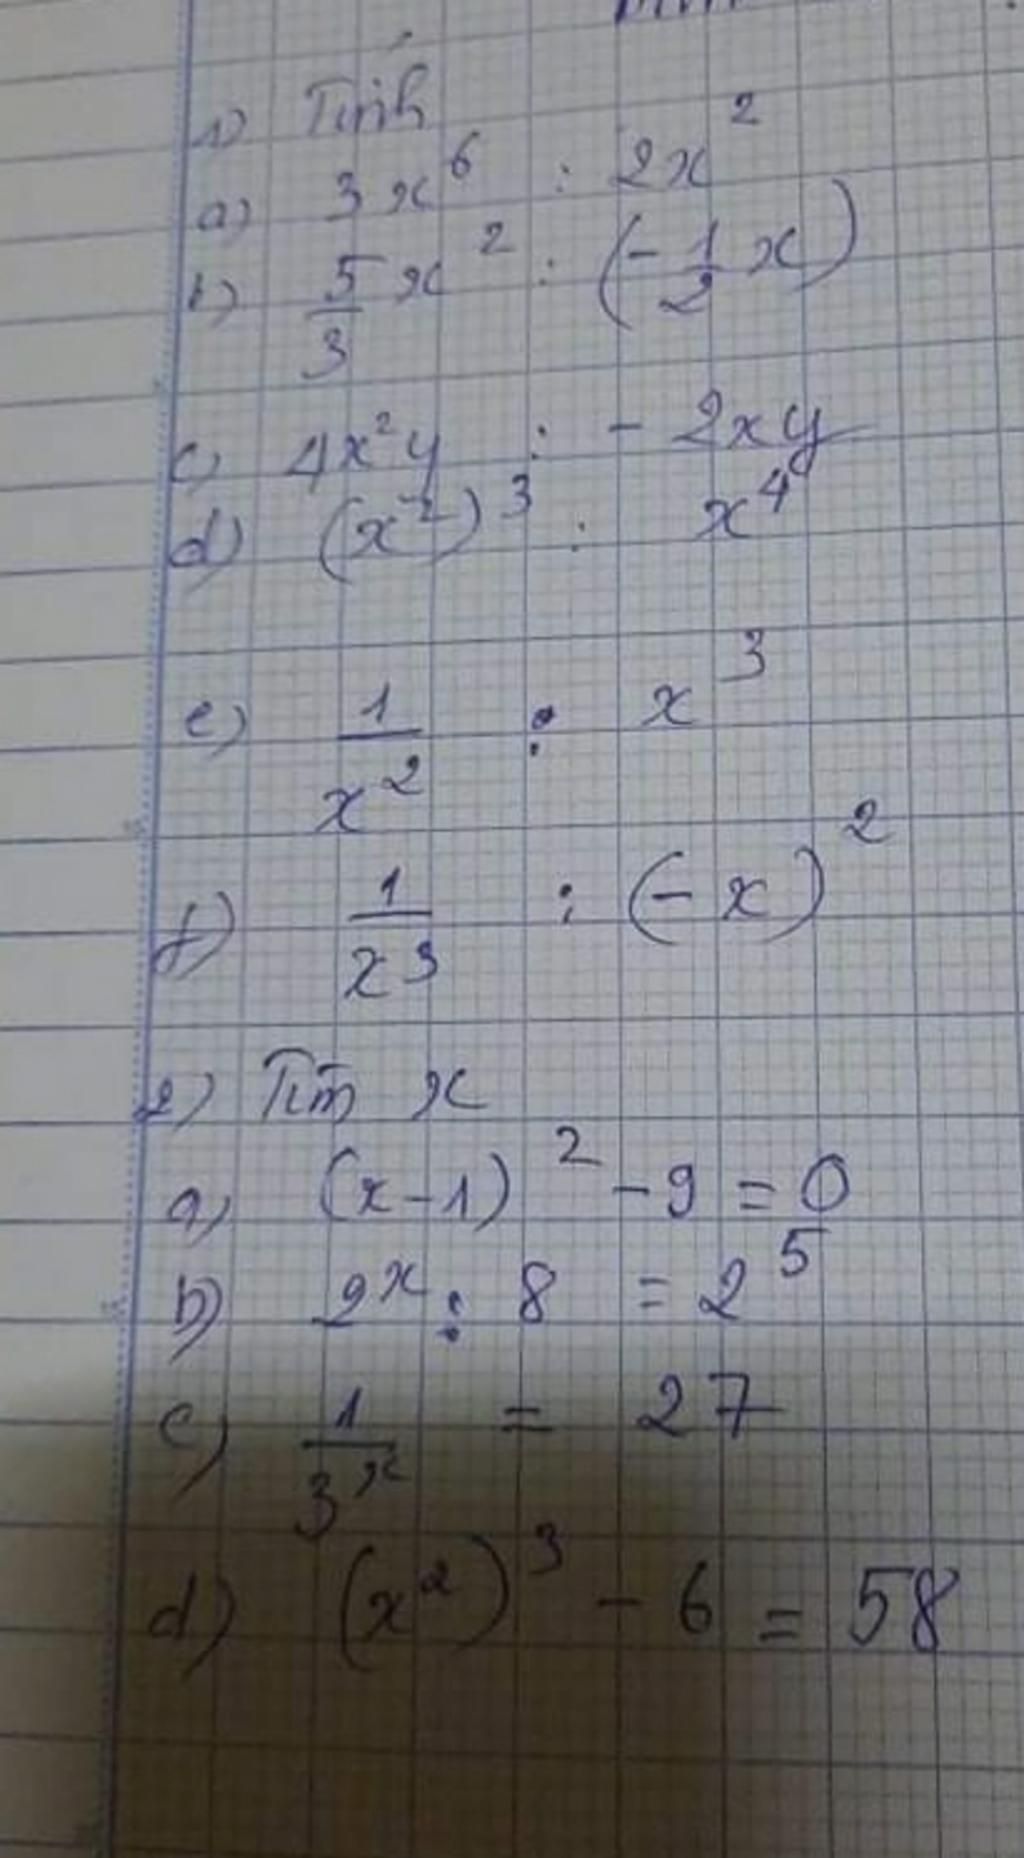 1) Tính
a) 3x⁶ : 2x²
b) 5/3 x² : (-1/2 x)
c) 4x²y : - 2xy
d) (x²)³ : x⁴
e) 1/x² : x³
f) 1/x³ : (-x)²
2) Tìm x
a) (x-1)² - 9 = 0
b) 2ˣ : 8 = 2⁵
c) 1/3ˣ = 27
d) (x²)³ - 6 = 58